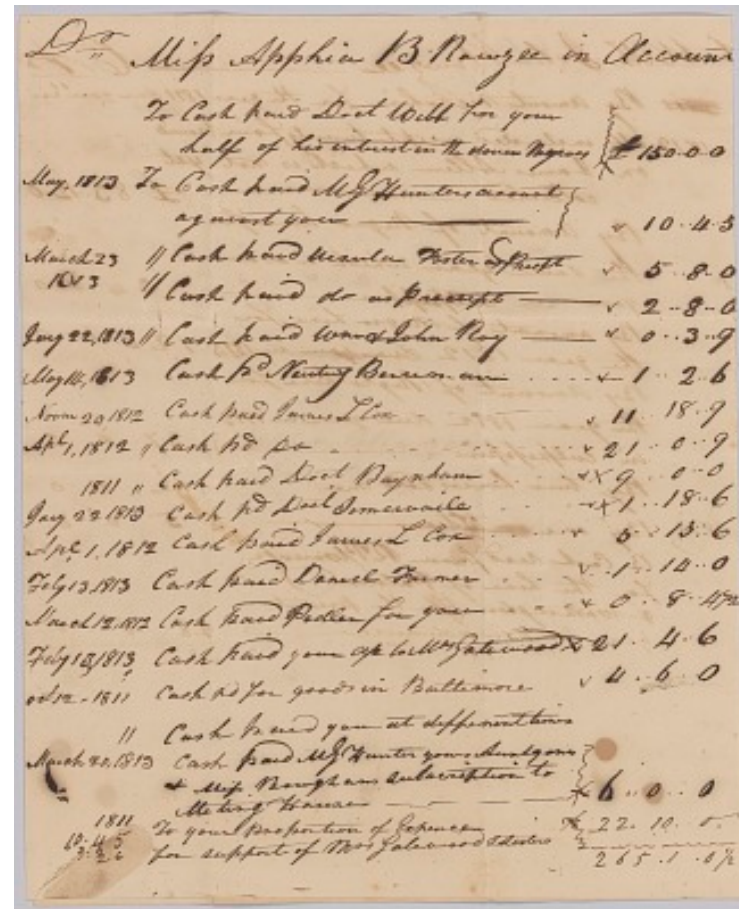 Dr. Miss Apphia B. Rouzee in Account
To Cash paid Doct Webb for your
half of his interest in the Negroes £ 150..0..0
May, 1813 To Cash paid M G Hunters account
against you 10..4..3
March 23 " Cash paid Ursula Foster as Rcept 5..8..0
1813 " Cash paid do as Preceipt 2..8..0
Jany 22, 1813 " Cash paid John Roy 0..3..9
May 14, 1813 Cash pd 1 2 6
Novm 20, 1812 Cash paid James L Cox 11 18..9
Apl 1, 1812 " Cash pd Do 21..0..9
1811 " Cash paid Doct Baynham x 9 0..0
Jany 22 1813 Cash pd Doct Somervaile x 1..18..6
Apl. 1, 1812 Cash paid James L Cox 5..13..6
Feby 13, 1813 Cash paid Daniel Turner 1..14..0
March 12, 1812 Cash paid Pedler for you 0..8..4½
Feby 15, 1813 Cash paid your a/c to Mrs Gatewood x 21 4..6
oct 12 - 1811 Cash pd for goods in Baltimore 4..6..0
" Cash paid you at different times
March 20, 1813 Cash paid M G Hunter yours Aunt
& Miss subscription to
Meting House x 6..0..0
1811 To your proportion of Expences x 22..10..0
10..4..3 for support of Mrs Gatewood
265..1..0½